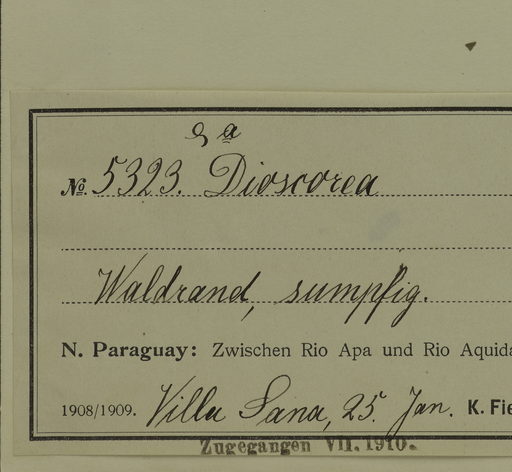 a
No. 5323. Dioscorea
Waldrand, sumpfig.
N. Paraguay: Zwischen Rio Apa und Rio Aquida
1908/1909. Villa Sana, 25. Jan. K. Fie
Zugegangen VII. 1910.